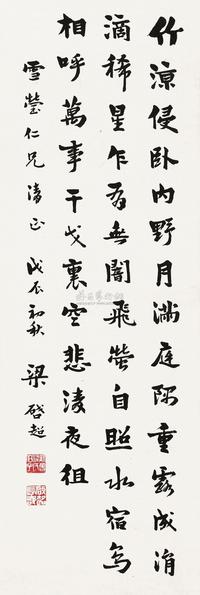 竹涼侵卧内野月满庭隅重露成涓
滴稀星乍有無闇飛螢自照水宿鳥
相呼萬事干戈裏空悲清夜徂
雪瑩仁兄清正 戊辰初秋 梁啓超